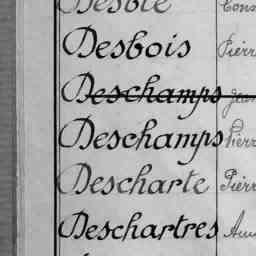 Desbois Pierr
Deschamps Jean
Deschamps Pierr
Descharte Pierr
Deschartres